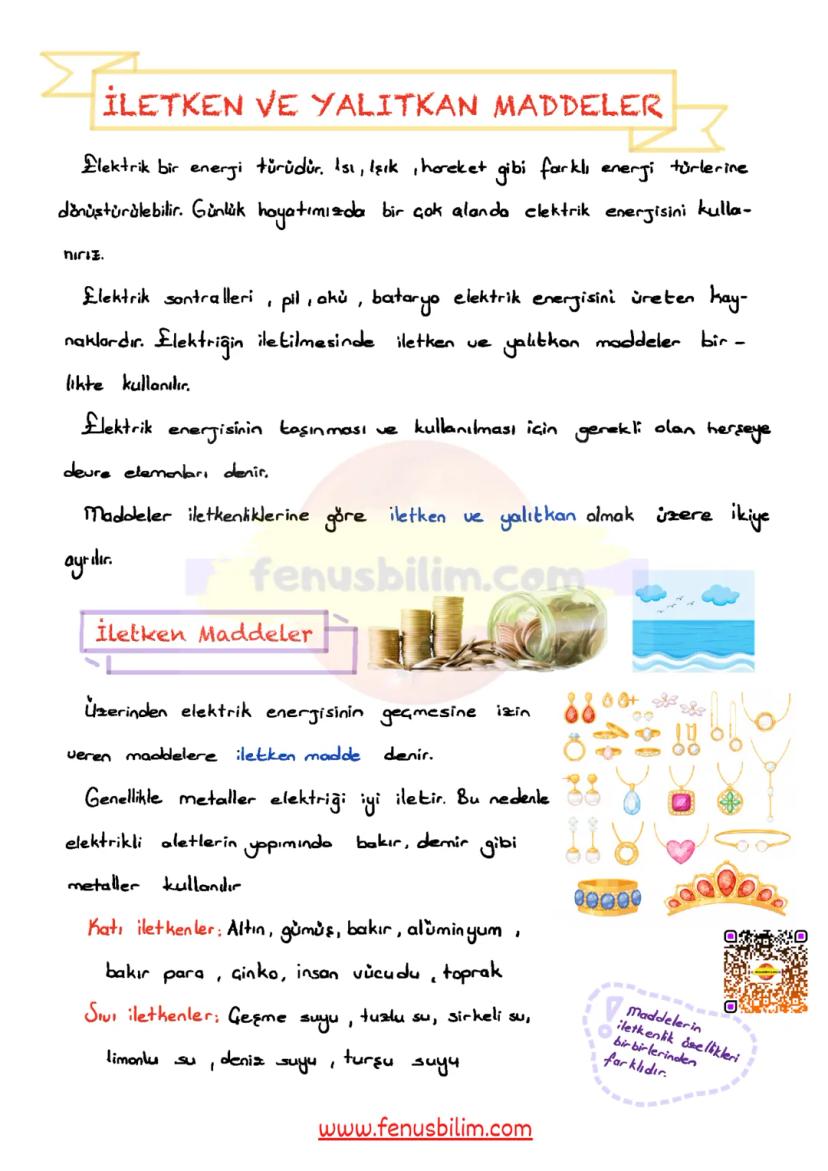 İLETKEN VE YALITKAN MADDELER
Elektrik bir enerji türüdür. Isı, Işık, hareket gibi farklı enerji türlerine
dönüştürülebilir. Günlük hayatımızda bir çok alanda elektrik enerjisini kulla-
nırız.
Elektrik santralleri, pil, akü, batarya elektrik enerjisini üreten kay-
naklardır. Elektriğin iletilmesinde iletken ve yalıtkan maddeler bir-
likte kullanılır.
Elektrik enerjisinin taşınması ve kullanılması için gerekli olan herşeye
devre elemanları denir.
Maddeler iletkenliklerine göre iletken ve yalıtkan olmak üzere ikiye
ayrılır.
fenusbilim.com
İletken Maddeler
Üzerinden elektrik enerjisinin geçmesine izin
veren maddelere iletken madde denir.
Genellikle metaller elektriği iyi iletir. Bu nedenle
elektrikli aletlerin yapımında bakır, demir gibi
metaller kullanılır
Katı iletkenler: Altın, gümüş, bakır, alüminyum,
bakır para, Çinko, insan vücudu, toprak
Sıvı iletkenler: Çeşme suyu, tuzlu su, sirkeli su,
limonlu su, deniz suyu, turşu suyu
! Maddelerin
iletkenlik özellikleri
birbirlerinden
farklıdır.
www.fenusbilim.com